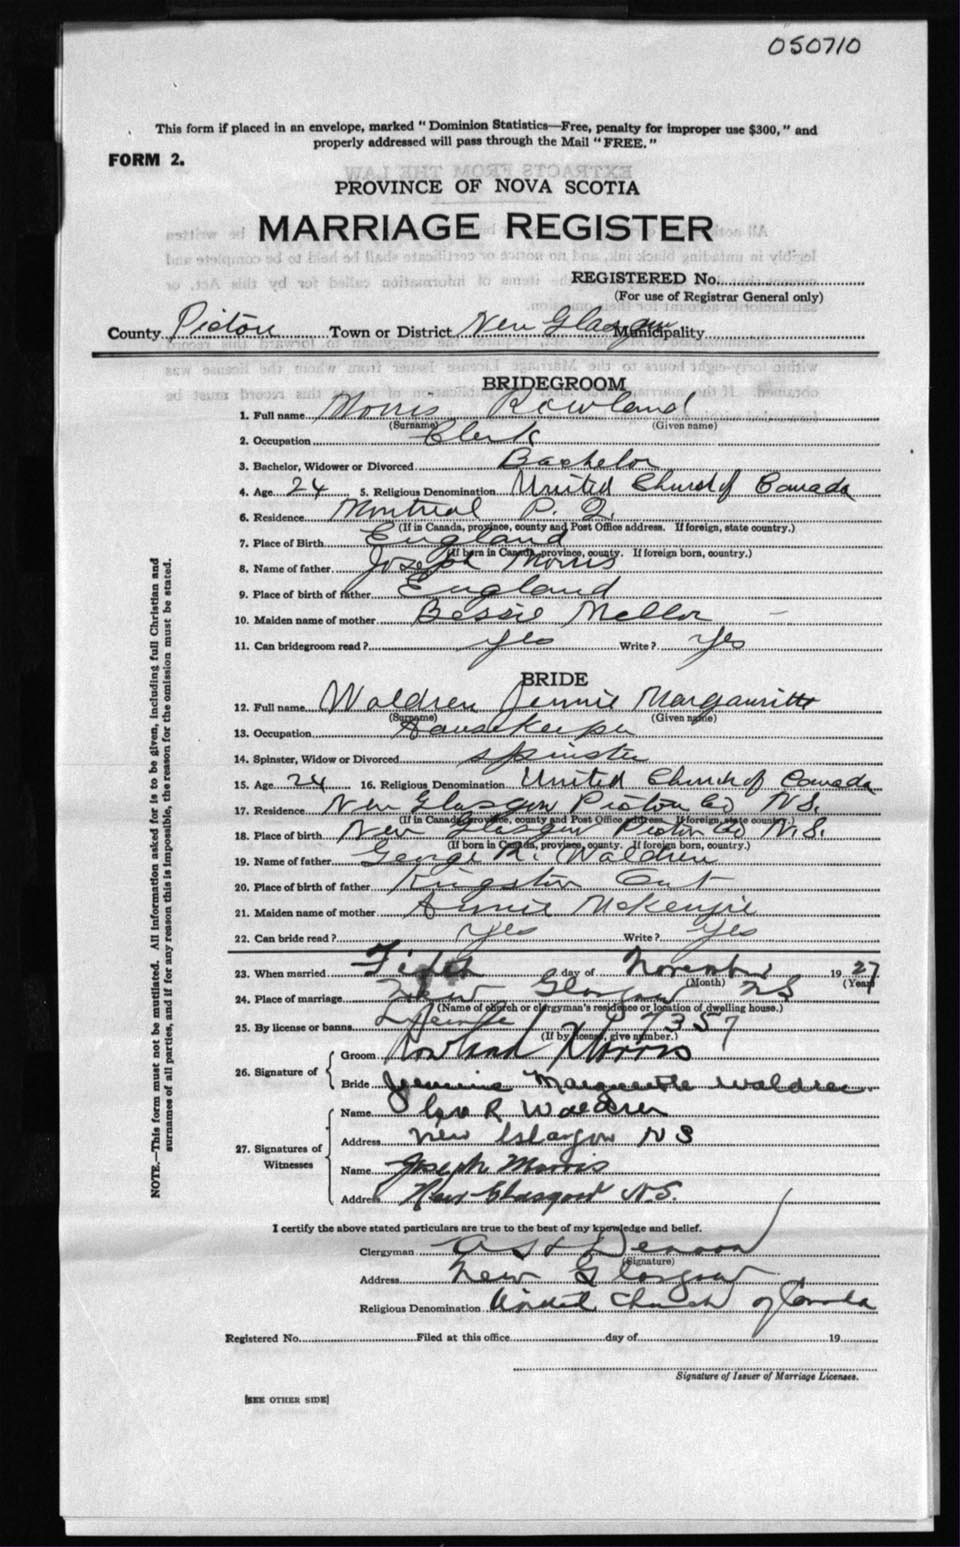 050710
This form if placed in an envelope, marked "Dominion Statistics—Free, penalty for improper use $300," and
properly addressed will pass through the Mail "FREE."
FORM 2.
PROVINCE OF NOVA SCOTIA
MARRIAGE REGISTER
REGISTERED No.
(For use of Registrar General only)
County Pictou Town or District New Glasgow Municipality
BRIDEGROOM
1. Full name Morris Rowland
(Surname) (Given name)
2. Occupation Clerk
3. Bachelor, Widower or Divorced Bachelor
4. Age 24 5. Religious Denomination United Church of Canada
6. Residence Montreal P. Q.
(If in Canada, province, county and Post Office address. If foreign, state country.)
7. Place of Birth England
(If born in Canada, province, county. If foreign born, country.)
8. Name of father Joseph Morris
9. Place of birth of father England
10. Maiden name of mother Bessie Mellor
11. Can bridegroom read? yes Write? Yes
BRIDE
12. Full name Waldren Jennie Margauritte
(Surname) (Given name)
13. Occupation Housekeeper
14. Spinster, Widow or Divorced spinster
15. Age 24 16. Religious Denomination United Church of Canada
17. Residence New Glasgow Pictou Co N.S.
(If in Canada, province, county and Post Office address. If foreign, state country.)
18. Place of birth New Glasgow Pictou Co N.S.
(If born in Canada, province, county. If foreign born, country.)
19. Name of father George R. Waldren
20. Place of birth of father Kingston Ont
21. Maiden name of mother Annie McKenzie
22. Can bride read? Yes Write? Yes
23. When married Fifth day of November 1927
(Month) (Year)
24. Place of marriage New Glasgow NS
(Name of church or clergyman's residence or location of dwelling house.)
25. By license or banns License 7357
(If by license, give number.)
26. Signature of
Groom Rowland Morris
Bride Jennie Marguerite Waldren
27. Signatures of Witnesses
Name Geo R Waldren
Address New Glasgow N S
Name Joseph Morris
Address New Glasgow N.S.
I certify the above stated particulars are true to the best of my knowledge and belief.
Clergyman Denoon
(Signature)
Address New Glasgow
Religious Denomination United Church of Canada
Registered No. Filed at this office day of 19
Signature of Issuer of Marriage Licenses.
[SEE OTHER SIDE]
NOTE.—This form must not be mutilated. All information asked for is to be given, including full Christian and
surnames of all parties, and if for any reason this is impossible, the reason for the omission must be stated.